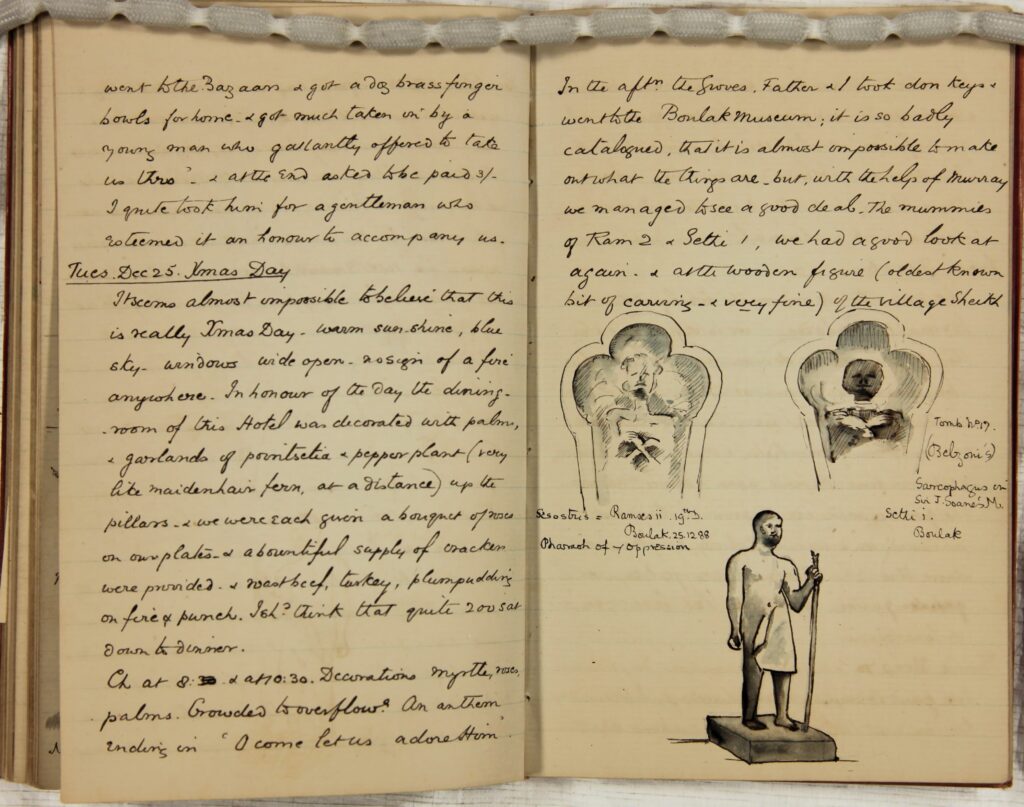 went to the Bazaars & got a doz brass finger
bowls for home - & got much taken in by a
young man who gallantly offered to take
us thro' - & at the end asked to be paid 3/-
I quite took him for a gentleman who
esteemed it an honour to accompany us.
Tues. Dec 25. Xmas Day
It seems almost impossible to believe that this
is really Xmas Day - warm sun-shine, blue
sky - windows wide open - no sign of a fire
anywhere. In honour of the day the dining-
-room of this Hotel was decorated with palms,
& garlands of pointsetia & pepper plant (very
like maidenhair fern, at a distance) up the
pillars - & we were each given a bouquet of roses
on our plates - & a bountiful supply of crackers
were provided - & roast beef, turkey, plumpudding
on fire & punch. I shd think that quite 200 sat
down to dinner.
Ch at 8:30 & at 10:30. Decorations myrtle, roses,
palms. Crowded to overflowg. An anthem
ending in "O come let us adore Him"
In the aftn the Groves, Father & I took donkeys &
went to the Boulak Museum; it is so badly
catalogued, that it is almost impossible to make
out what the things are - but, with the help of Murray
we managed to see a good deal. The mummies
of Ram 2 & Sethi 1, we had a good look at
again - & at the wooden figure (oldest known
bit of carving - & very fine) of the village Sheikh
Sesostris = Ramses ii. 19th D.
Boulak. 25.12.88
Pharaoh of y oppression
Tomb No 17.
(Belzoni's)
Sarcophagus in
Sir J. Soane's M.
Sethi i.
Boulak